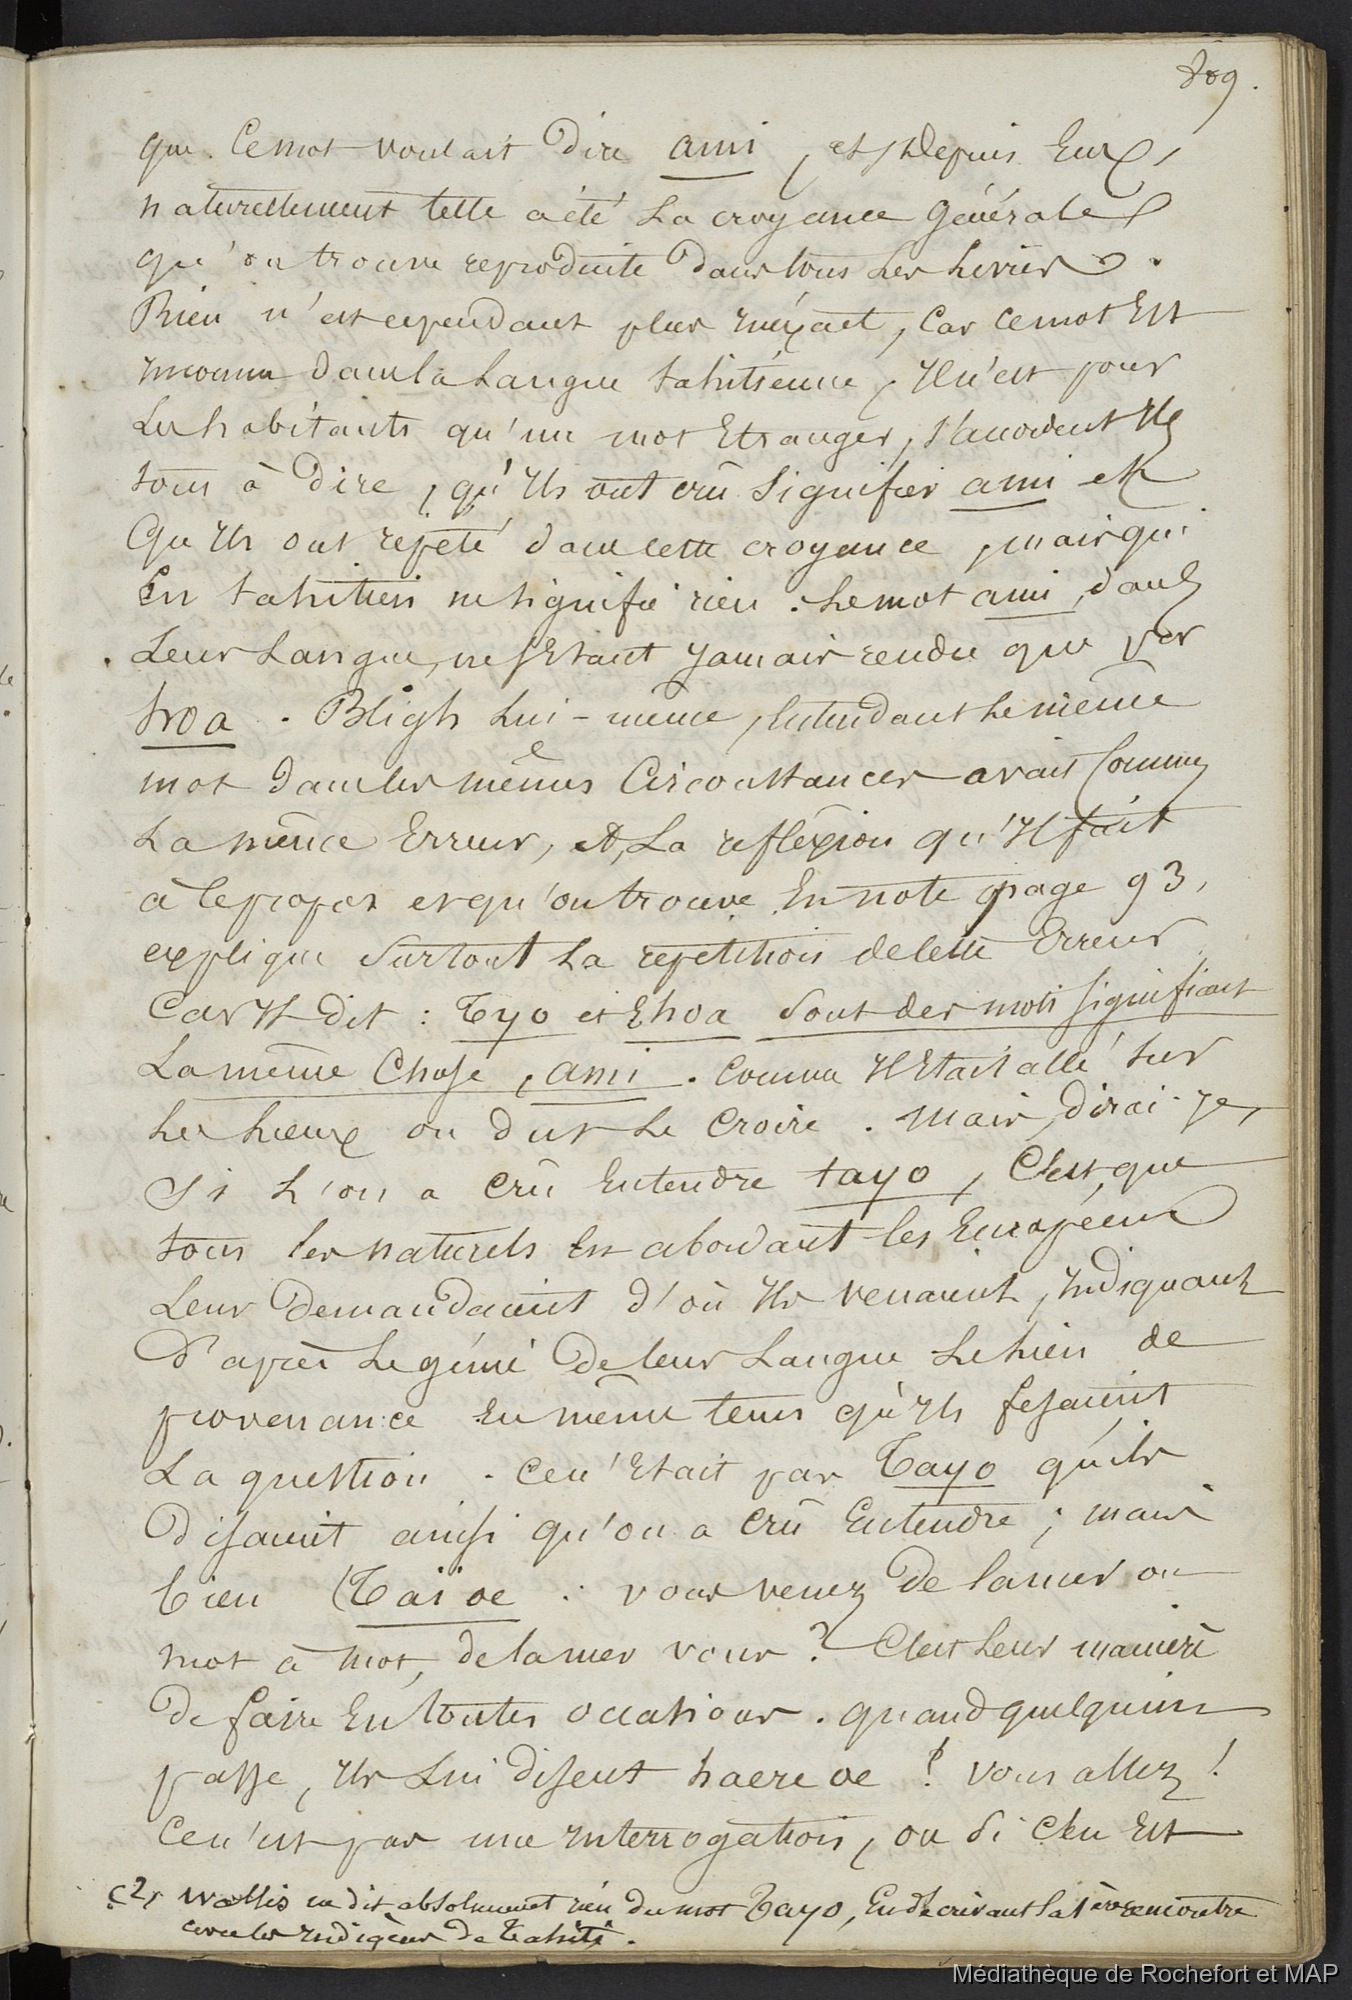 809.
que ce mot voulait dire ami, et, depuis Eux,
naturellement telle a été La croyance Générale
qu'on trouve reproduite dans tous Les Livres.
Rien n'est cependant plus inéxact, Car ce mot Est
inconnu dans la Langue tahitienne, Il n'est pour
Les habitants qu'un mot Etranger, s'accordent Ils
tous à Dire, qu'Ils ont crû signifier ami et
Qu'Ils ont répété dans cette croyance, mais qui
En tahitien ne signifie rien. Le mot ami, dans
Leur Langue, ne s'Etant jamais rendu que par
hoa. Bligh Lui-même, Entendant Le même
mot dans les mêmes Circonstances avait Commis
La même Erreur, et, La refléxion qu'Il fait
à Ce propos et qu'on trouve En note page 93,
explique surtout La repetition de cette Erreur
Car Il dit : Tyo et Ehoa sont des mots signifiant
La même Chose, ami. Comme Il Etait allé sur
Les Lieux on dut Le Croire. Mais, dirai-je,
Si L'on a crû Entendre tayo, C'est que
tous les naturels En abordant les Européens
Leur Demandaient d'où Ils venaient, Indiquant
D'après Le génie de leur Langue Le Lieu de
provenance En même tems qu'Ils fesaient
La question. Ce n'Etait pas Tayo qu'ils
Disaient ainsi qu'on a Crû Entendre ; mais
bien (Tai oe : vous venez De la mer ou
mot à mot, de la mer vous ? C'est Leur manière
De faire En toutes occasions. quand quelqu'un
passe, Ils Lui disent haere oe ! vous allez !
Ce n'est pas une Interrogation, ou si C'en Est
(2) Wallis ne dit absolument rien du mot Tayo, En décrivant la 1ère rencontre
avec les Indigènes De Tahiti.
Médiathèque de Rochefort et MAP